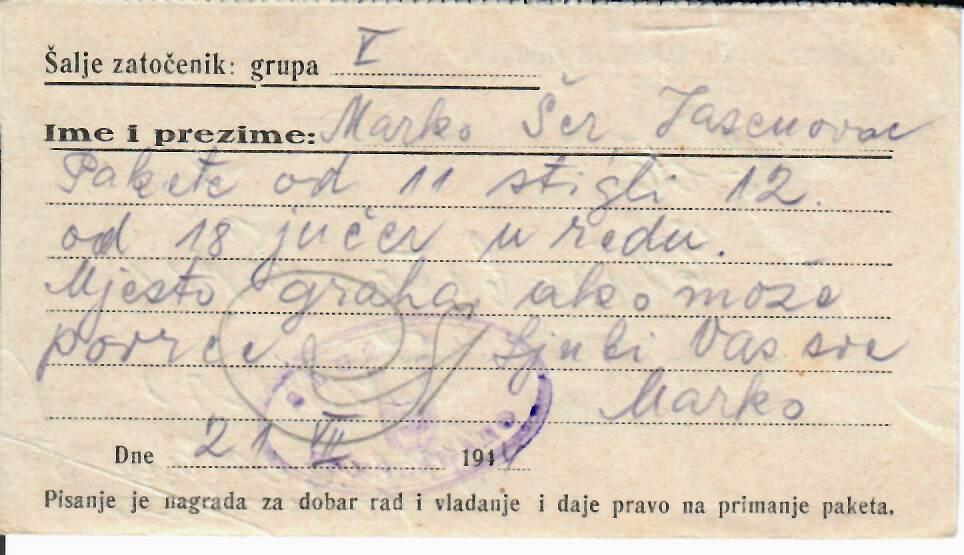 Šalje zatočenik: grupa V
Ime i prezime: Marko Šer, Jasenovac
Pakete od 11 stigli 12.
od 18 jučer u redu.
Mjesto graha, ako može
povrće Ljubi Vas sve
Marko
Dne 21 VII 194
Pisanje je nagrada za dobar rad i vladanje i daje pravo na primanje paketa.